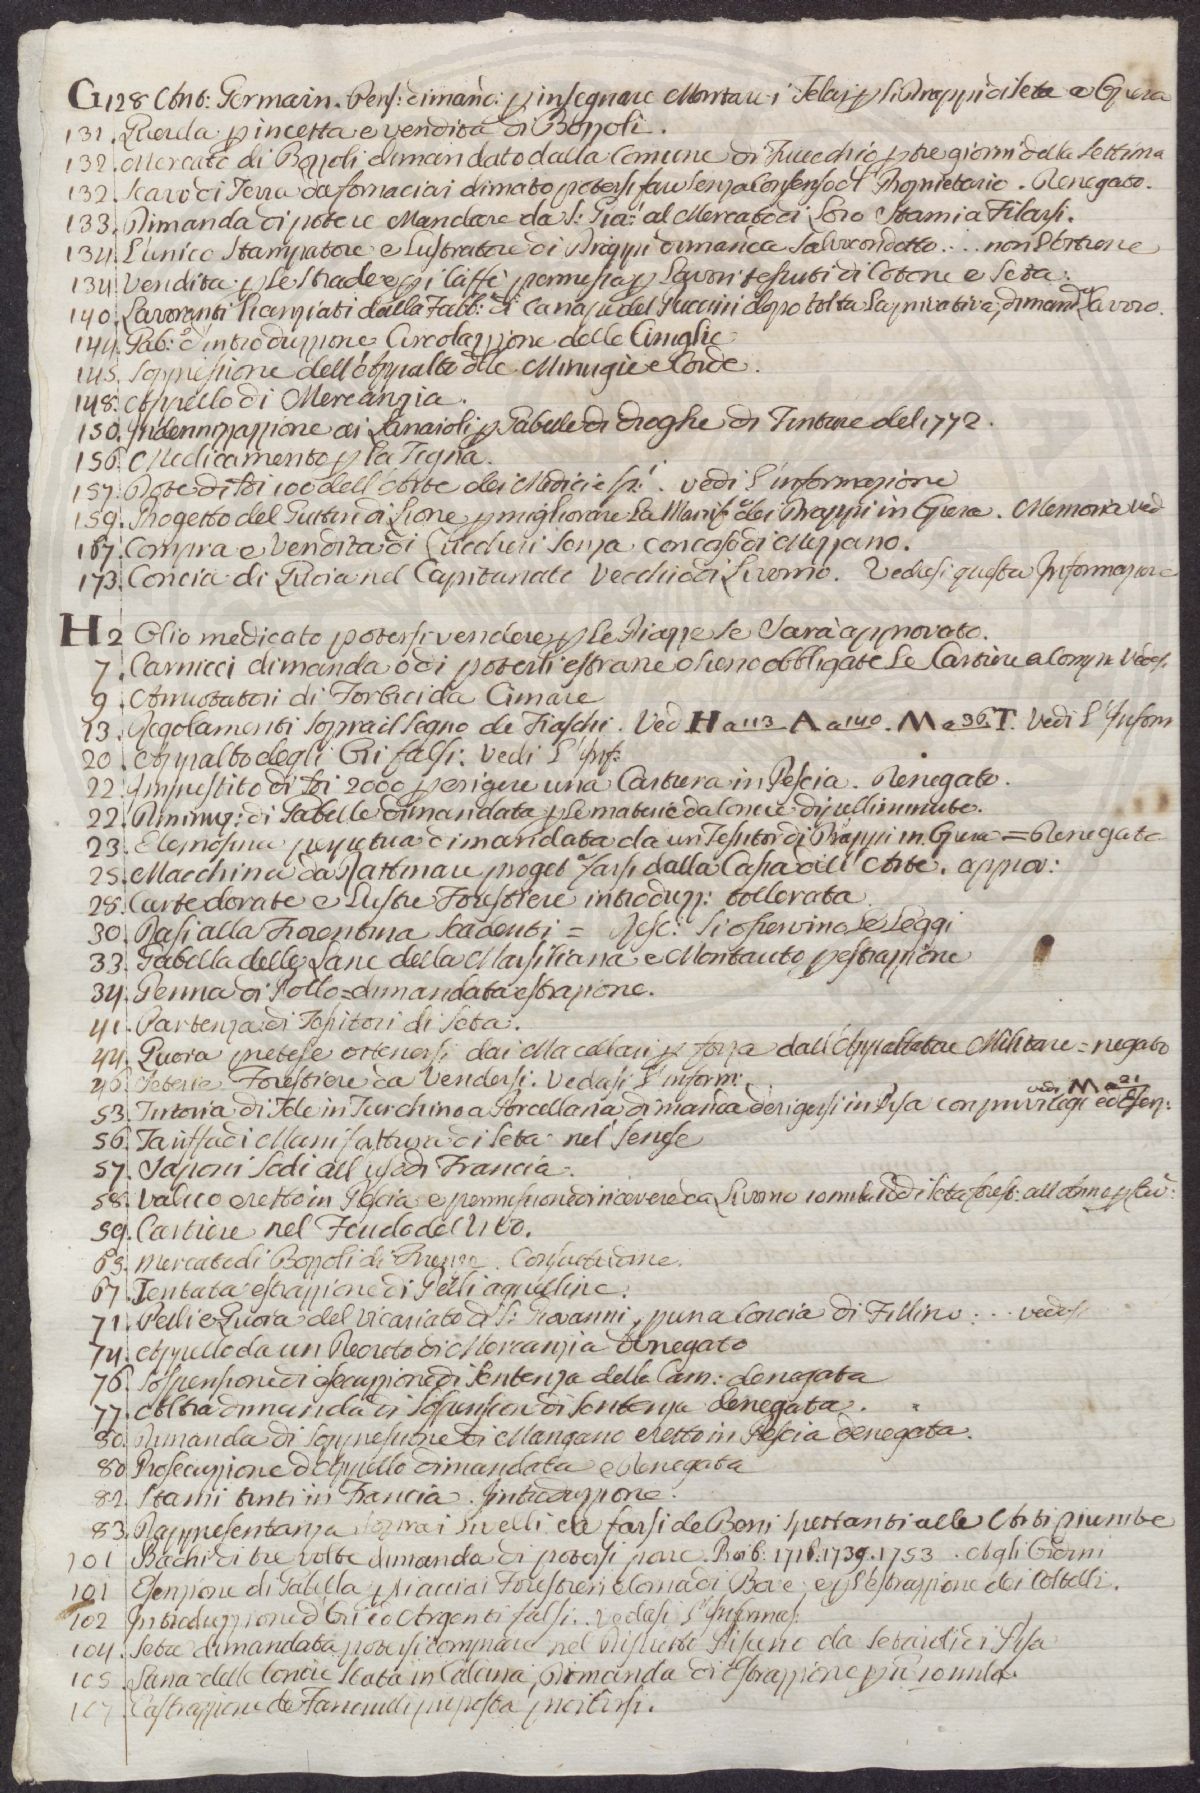 G 128 Ant: Germain. Pens: dimand: p insegnare Montare i Telai p li Drappi di seta a Opera
131. Querela p incetta e vendita di Bozzoli.
132. Mercato di Bozzoli dimandato dalla Comune di Fucecchio p tre giorni della settima
132. Scavo di Terra da fornaciai dimato potersi fare senza Consenso del Proprietario. Denegato.
133. Dimanda di potere Mandare da S: Gia: al Mercato di Loro Stamia Filarsi.
134. L'unico Stampatore e Lustratore di Drappi dimanda Salvacondotto... non l'ottiene
134. Vendita p le strade e p i Caffè permessa p Lavori tessuti di Cotone e Seta.
140. Lavoranti Licenziati dalla Fabb: di Canapa del Puccini dopo tolta la privativa, dimand Lavoro.
144. Gab: d'introduzzione Circolazzione delle Ciniglie
145. Soppressione dell'Appalto delle Minugie e Corde.
148. Appello di Mercanzia.
150. Indennizzazzione ai Lanaioli p Gabelle di droghe di Tinture del 1772.
156. Medicamento p la Tigna.
157. Dote di sdi 100 dell'Arte dei Medici e Sp:i. vedi l'informazione
159. Progetto del Guttin di Lione p migliorare la Manif: dei Drappi in Opera. Memoria ved
167. Compra e Vendita di Zuccheri senza concorso di Mezzano.
173. Concia di Quoia nel Capitanato Vecchio di Livorno. Vedasi questa Informazione
H 2 Olio medicato potersi vendere p le Piazze se sarà approvato.
7. Carnicci dimanda o di poterli estrarre o sieno obbligate le Cartiere a Comp:e Vedasi.
9. Arruotatori di Forbici da Cimare
13. Regolamenti sopra il segno de Fiaschi. Ved H a 113 A a 140. M a 36. T. Vedi l'Inform
20. Appalto degli Ori falsi: Vedi l'Inf:
22. Imprestito di sdi 2000 p erigere una Cartiera in Pescia. Denegato.
22. Diminuz: di Gabelle dimandata p le materie da Conce di pelli minute.
23. Elemosina perpetua dimandata da un Tessitor di Drappi in Opera = Denegata
25. Macchina da Rattinare proget farsi dalla Cassa dell'Arte. approv:
28. Carte dorate e Lustre Forestiere introduzz: tollerata
30. Rasi alla Fiorentina Scadenti = Resc: Si osservino le Leggi
33. Gabella delle Lane della Marsiliana e Montauto p estrazzione
34. Penna di Pollo = dimandata estrazione.
41. Partenza di Tessitori di Seta.
44. Quoia pretese ottenersi dai Macellari p forza dall'Appaltatore Militare = negato
46. Seterie Forestiere da Vendersi. Vedasi l'inform:
vedi M a 21
53. Tintoria di Tele in Turchino a Porcellana dimanda d'erigersi in Pisa con privilegi ed Esenz:
56. Tariffa di Manifattura di Seta nel Senese
57. Saponi Sodi all'uso di Francia.
58. Valico eretto in Pescia e permissione di ricevere da Livorno 10 mila di Seta forest: all'Anno p
59. Cartiere nel Feudo del Vivo.
65. Mercato di Bozzoli di Firenze. Consuetudine.
67. Tentata estrazzione di Pelli agnelline.
71. Pelli e Quoia del Vicariato di S: Giovanni, p una Concia di Fillino:... vedasi
74. Appello da un Decreto di Mercanzia denegato
76. Sospensione di esecuzzione di Sentenza della Cam: denegata
77. Altra dimanda di Sospension di Sentenza denegata.
80. Dimanda di Soppressione di Mangano eretto in Pescia denegata.
80. Prosecuzzione d'Appello dimandata e Denegata
82. Stami tinti in Francia. Introduzzione.
83. Rappresentanza sopra i livelli da farsi de Beni spettanti alle Arti riunite
101 Bachi di tre volte dimanda di potersi porre. Proib: 1718. 1739. 1753. Agli Ordini
101 Esenzione di Gabella p i acciai Forestieri e Corna di Bove, e p l'estrazzione dei Coltelli.
102 Introduzzione d'Ori ed Argenti falsi. Vedasi l'Informaz:
104. Sete dimandata potersi comprare nel Distretto Pisano da Setaioli di Pisa
105. Lana delle Concie stata in Calcina, Dimanda di Estrazzione p 10 mila
107. Castrazzione de Fanciulli proposta proibirsi.